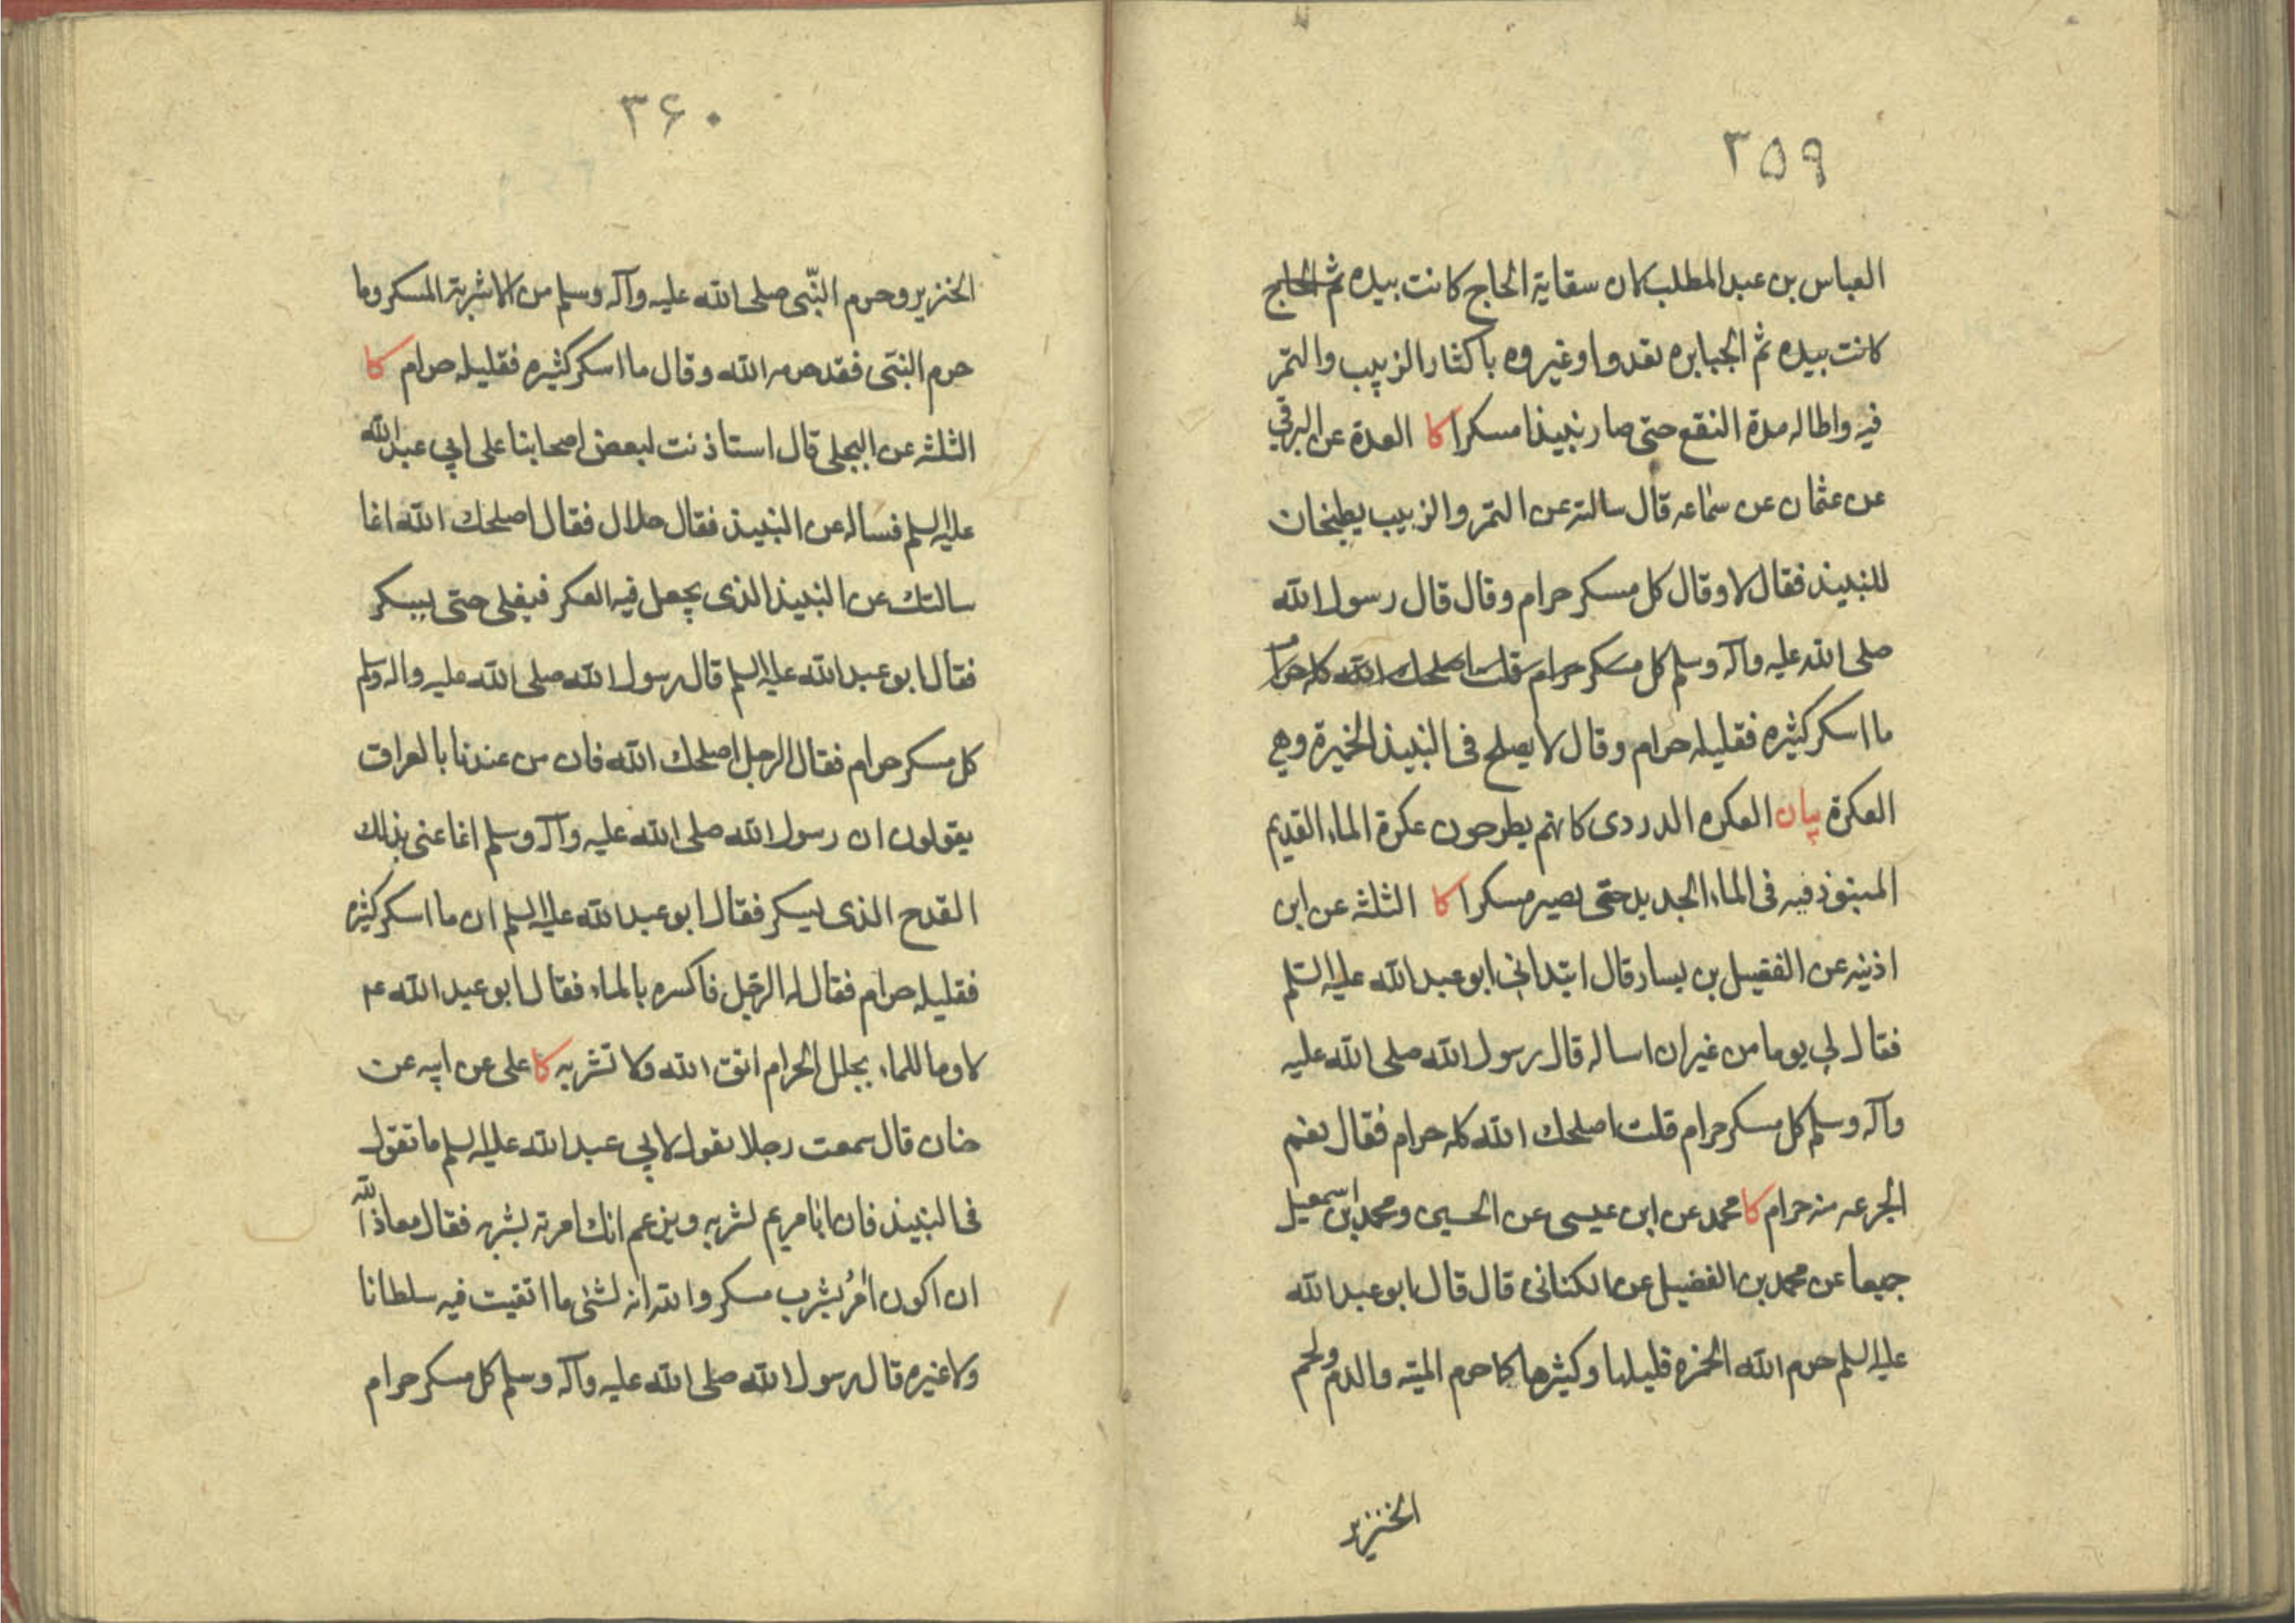 ۳۵۹
العباس بن عبد المطلب كان سقاية الحاج كانت بيده ثم الحاج
كانت بيده ثم الجبابره بعد و اوغيروه باكثار الزبيب والتمر
فيه واطاله مدة النقع حتى صار نبيذا مسكرا كا العدة عن البرقي
عن عثمان عن سماعه قال سالته عن التمر والزبيب يطبخان
للنبيذ فقال لا وقال كل مسكر حرام وقال قال رسول الله
صلى الله عليه وآله وسلم كل مسكر حرام قلت اصلحك الله كله حرام
ما اسكر كثيره فقليله حرام وقال لا يصلح فى النبيذ الخميرة وهي
العكرة بيان العكره الدردى كانهم يطرحون عكرة الماء القديم
المنبوذ فيه فى الماء الجديد حتى يصير مسكرا كا الثلثه عن ابن
اذينه عن الفضيل بن يسار قال ابتدانى ابو عبد الله عليه السلم
فقال لى يوما من غير ان اساله قال رسول الله صلى الله عليه
وآله وسلم كل مسكر حرام قلت اصلحك الله كله حرام فقال نعم
الجرعه منه حرام كا محمد عن ابن عيسى عن الحسين ومحمد بن اسمعيل
جميعا عن محمد بن الفضيل عن الكنانى قال قال ابو عبد الله
عليه السلم حرم الله الخمره قليلها وكثيرها كما حرم الميته والدم ولحم
الخنزير
۳۶۰
الخنزير وحرم النبّى صلى الله عليه وآله وسلم من الاشربة المسكر وما
حرم النبّى فقد حرمه الله وقال ما اسكر كثيره فقليله حرام كا
الثلثه عن البجلى قال استاذنت لبعض اصحابنا على ابي عبد الله
عليه السلم فساله عن النبيذ فقال حلال فقال اصلحك الله انما
سالتك عن النبيذ الذى يجعل فيه العكر فيغلى حتى يسكر
فقال ابو عبد الله عليه السلم قال رسول الله صلى الله عليه واله وسلم
كل مسكر حرام فقال الرجل اصلحك الله فان من عندنا بالعراق
يقولون ان رسول الله صلى الله عليه وآله وسلم انما عنى بذلك
القدح الذى يسكر فقال ابو عبد الله عليه السلم ان ما اسكر كثيره
فقليله حرام فقال له الرجل فاكسره بالماء فقال ابو عبد الله ع
لا وما للماء يحلل الحرام اتق الله ولا تشربه كا على عن ابيه عن
حنان قال سمعت رجلا يقول لابي عبد الله عليه السلم ما تقول
فى النبيذ فان ابا مريم يشربه ويزعم انك امرته بشربه فقال معاذ الله
ان اكون امُر بشرب مسكر والله انه لشئ ما اتقيت فيه سلطانا
ولا غيره قال رسول الله صلى الله عليه وآله وسلم كل مسكر حرام